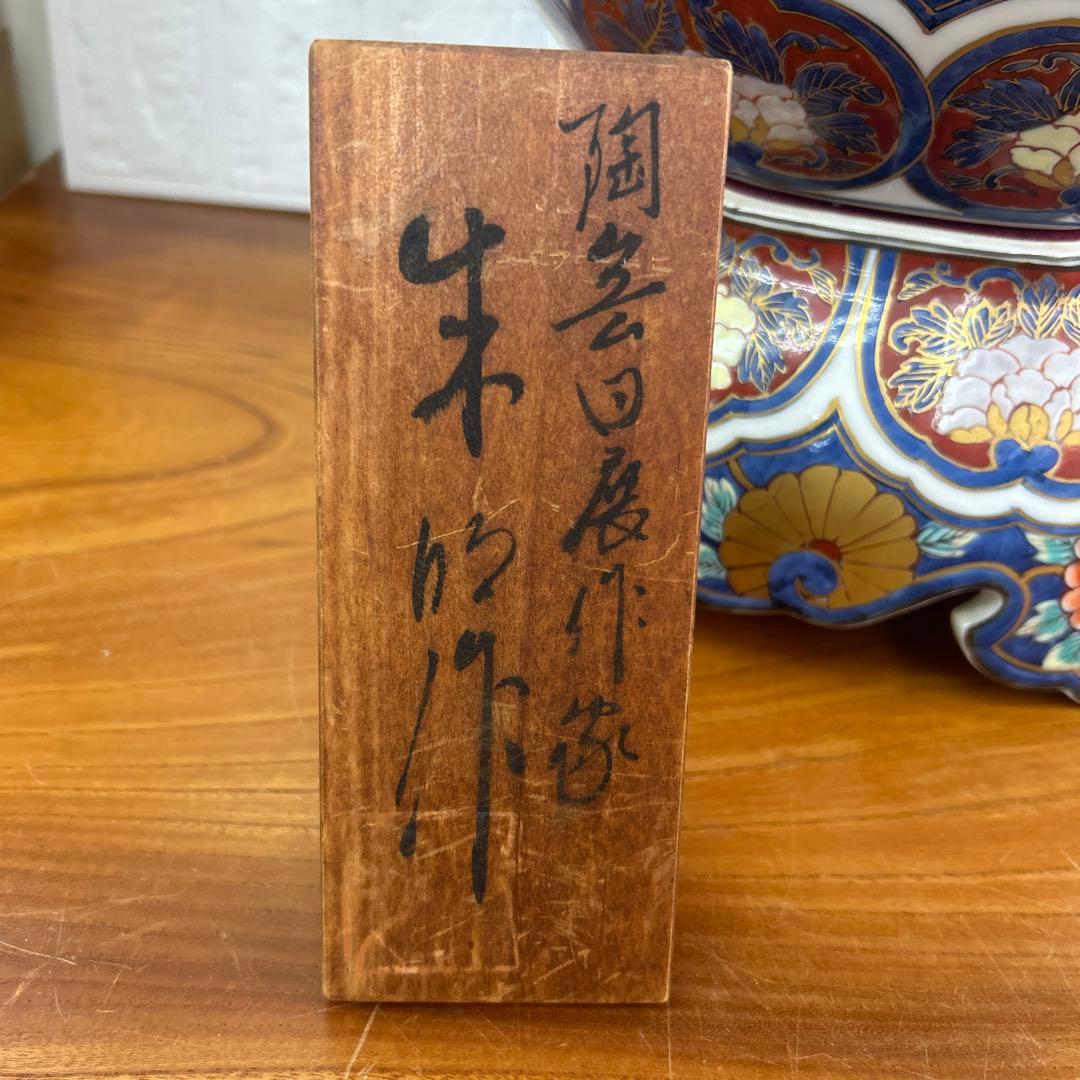 陶芸日展作家
朱明作